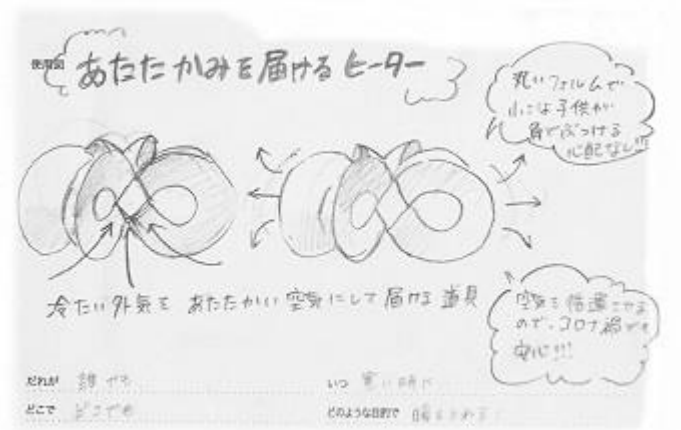 使用図
あたたかみを届けるヒーター
丸いフォルムで
小さな子供が
角でぶつける
心配なし!!
冷たい外気を あたたかい空気にして届ける 道具
空気を循環させる
ので、コロナ禍でも
安心!!!
だれが 誰でも
いつ 寒い時に
どこで どこでも
どのような目的で 暖をとれる